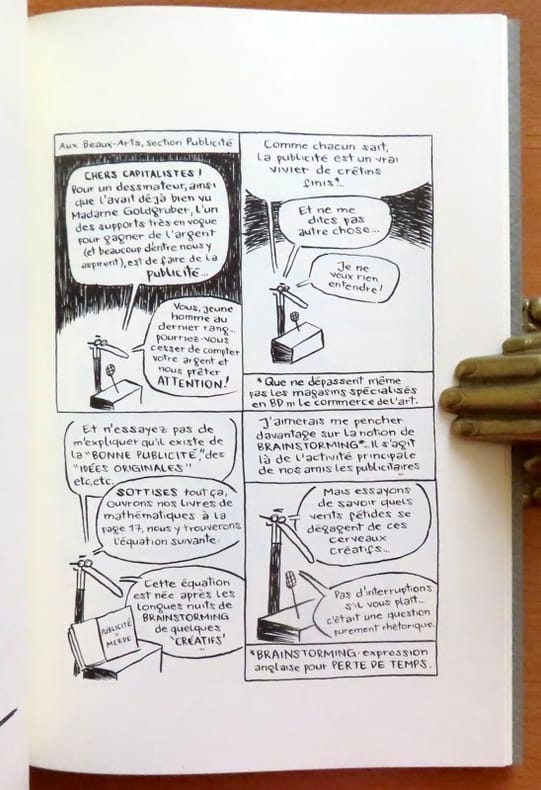 Aux Beaux-Arts, section Publicité
CHERS CAPITALISTES !
Pour un dessinateur, ainsi
que l'avait déjà bien vu
Madame Goldgruber, l'un
des supports très en vogue
pour gagner de l'argent
(et beaucoup d'entre nous y
aspirent), est de faire de la
publicité...
Vous, jeune
homme au
dernier rang...
pourriez-vous
cesser de compter
votre argent et
nous prêter
ATTENTION !
Comme chacun sait,
la publicité est un vrai
vivier de crétins
finis*...
Et ne me
dites pas
autre chose...
Je ne
veux rien
entendre !
*Que ne dépassent même
pas les magasins spécialisés
en BD ni le commerce de l'art.
Et n'essayez pas de
m'expliquer qu'il existe de
la "BONNE PUBLICITÉ," des
"IDÉES ORIGINALES"
etc, etc.
SOTTISES tout ça,
ouvrons nos livres de
mathématiques à la
page 17, nous y trouverons
l'équation suivante:
Cette équation
est née après les
longues nuits de
BRAINSTORMING
de quelques
'CRÉATIFS'
...
PUBLICITÉ
=
MERDE
J'aimerais me pencher
davantage sur la notion de
BRAINSTORMING*. Il s'agit
là de l'activité principale
de nos amis les publicitaires
Mais essayons
de savoir quels
vents fétides se
dégagent de ces
cerveaux
créatifs...
Pas d'interruptions
s'il vous plaît...
c'était une question
purement rhétorique.
*BRAINSTORMING: expression
anglaise pour PERTE DE TEMPS.